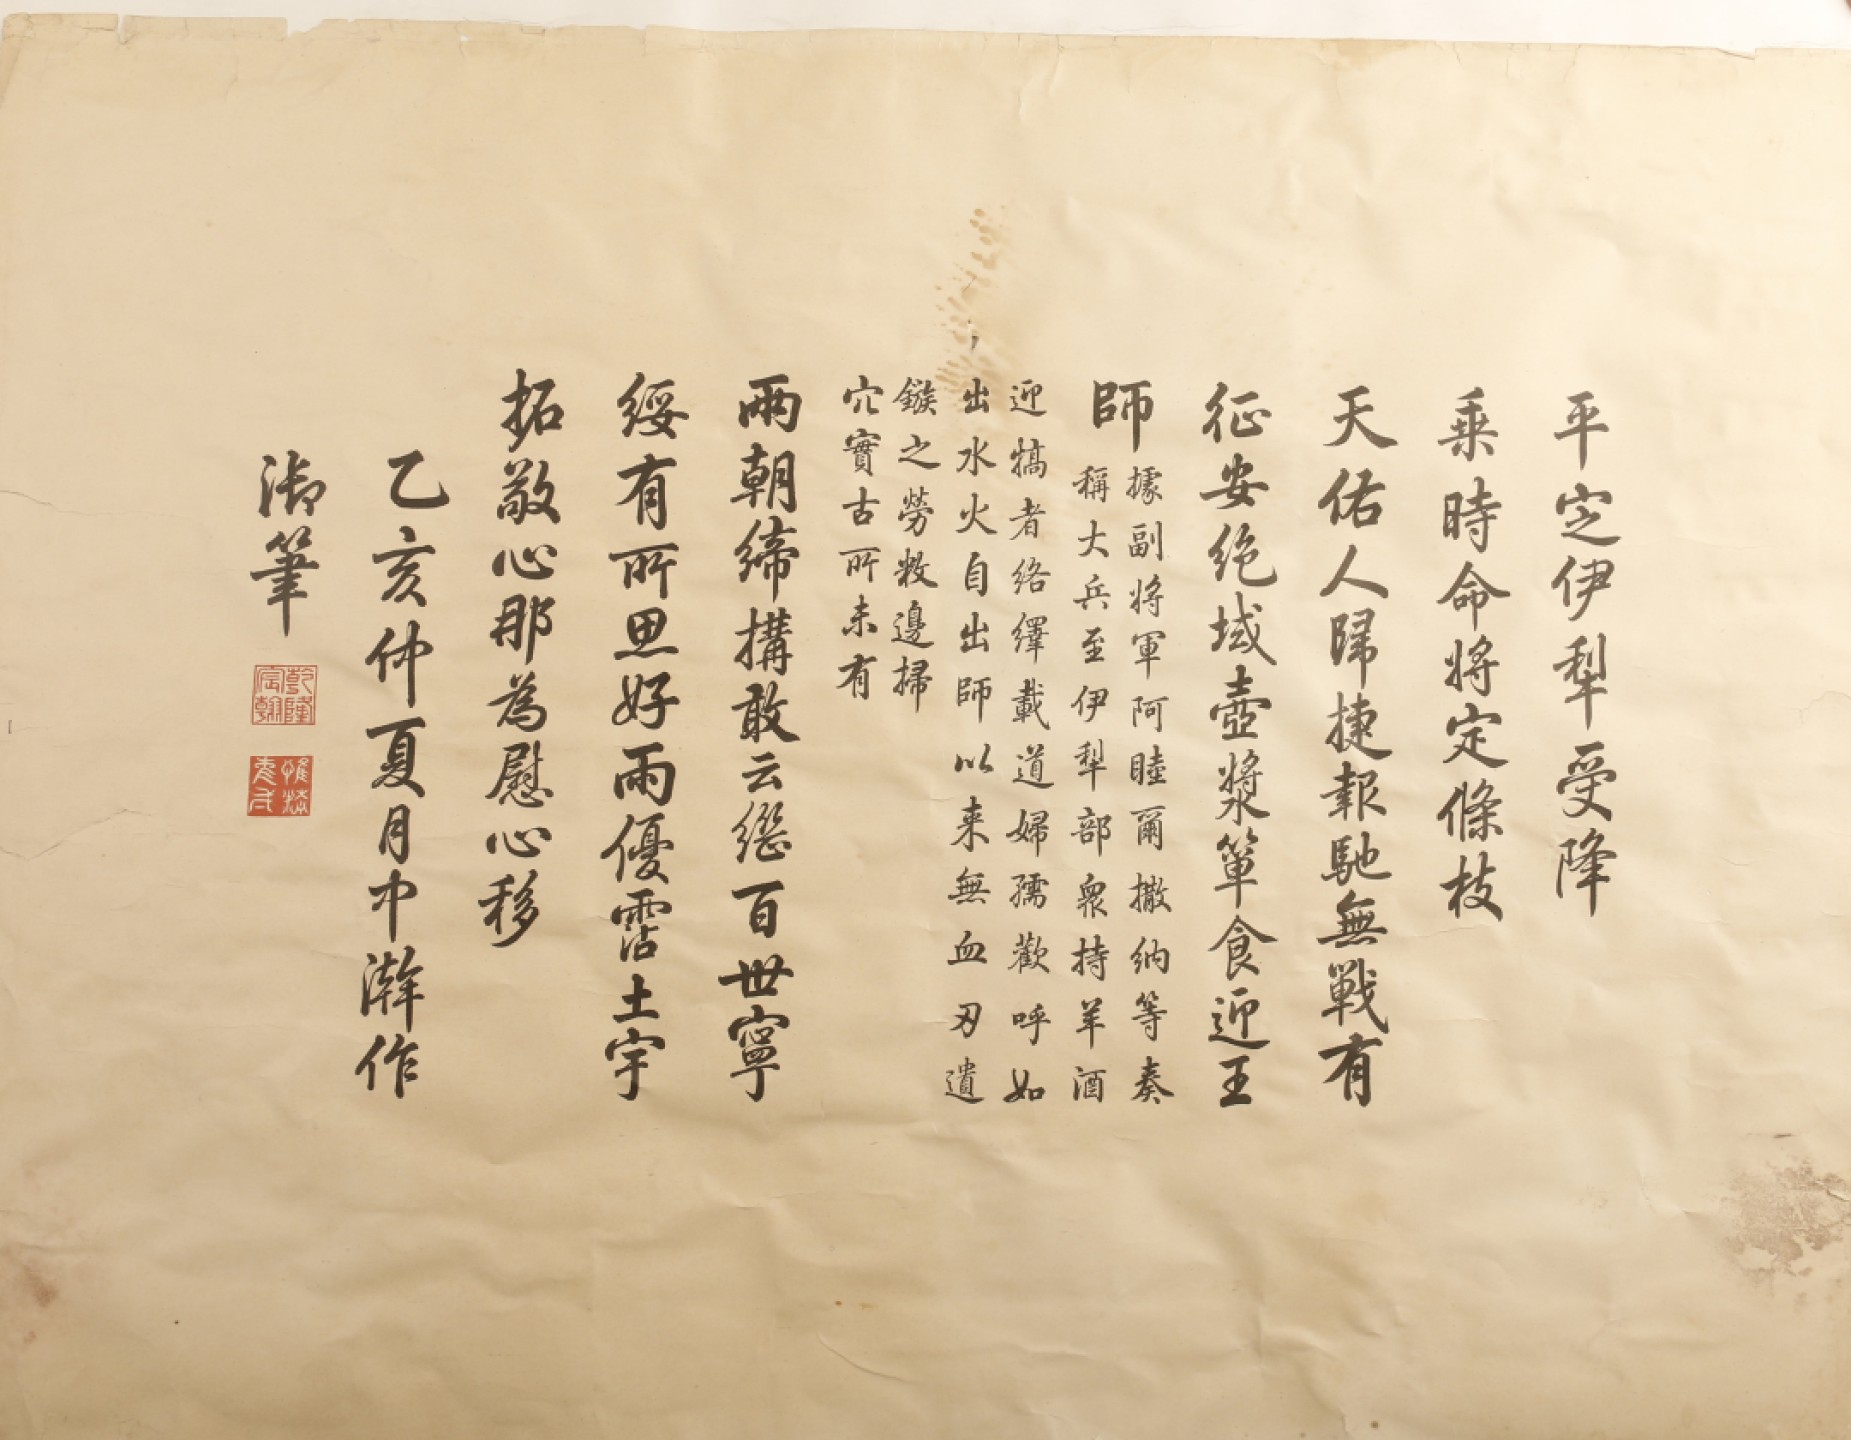 平定伊犁受降
乘時命將定條枝
天佑人歸捷報馳無戰有
征安絶域壺漿簞食迎王
師
據副將軍阿睦爾撒納等奏
稱大兵至伊犁部衆持羊酒
迎犒者絡繹載道婦孺歡呼如
出水火自出師以來無血刃遺
鏃之勞敉邊掃
穴實古所未有
兩朝締構敢云繼百世寧
綏有所思好雨優霑土宇
拓敬心那為慰心移
乙亥仲夏月中澣作
御筆
乾隆
宸翰
惟精
惟一